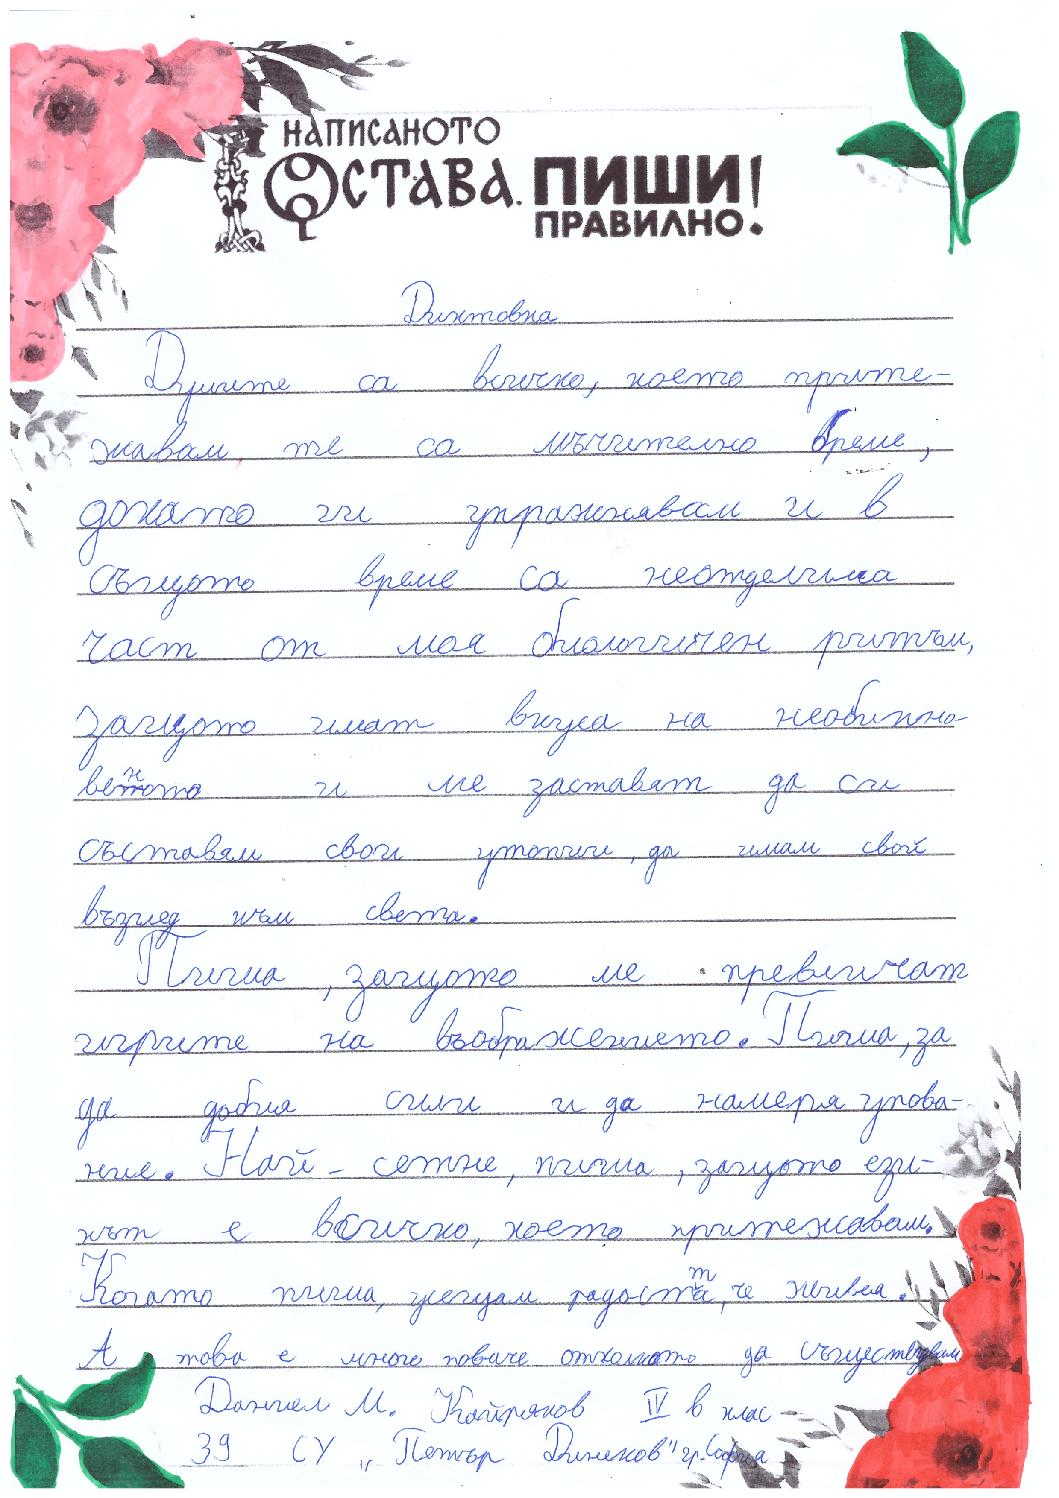 НАПИСАНОТО
ОСТАВА. ПИШИ!
ПРАВИЛНО.
Диктовка
Думите са всичко, което прите-
жавам, те са мъчително време,
докато ги упражнявам и в
същото време са неотделима
част от моя биологичен ритъм,
защото имат вкуса на необикно-
веното и ме заставят да си
съставям свои утопии, да имам свой
възглед към света.
Пиша, защото ме привличат
игрите на въображението. Пиша, за
да добия сили и да намеря упова-
ние. Най-сетне, пиша, защото ези-
кът е всичко, което притежавам.
Когато пиша, усещам радостта, че живея.
А това е много повече отколкото да съществувам
Даниел М. Кайряков IV в клас
39 СУ „Петър Динеков" гр. София